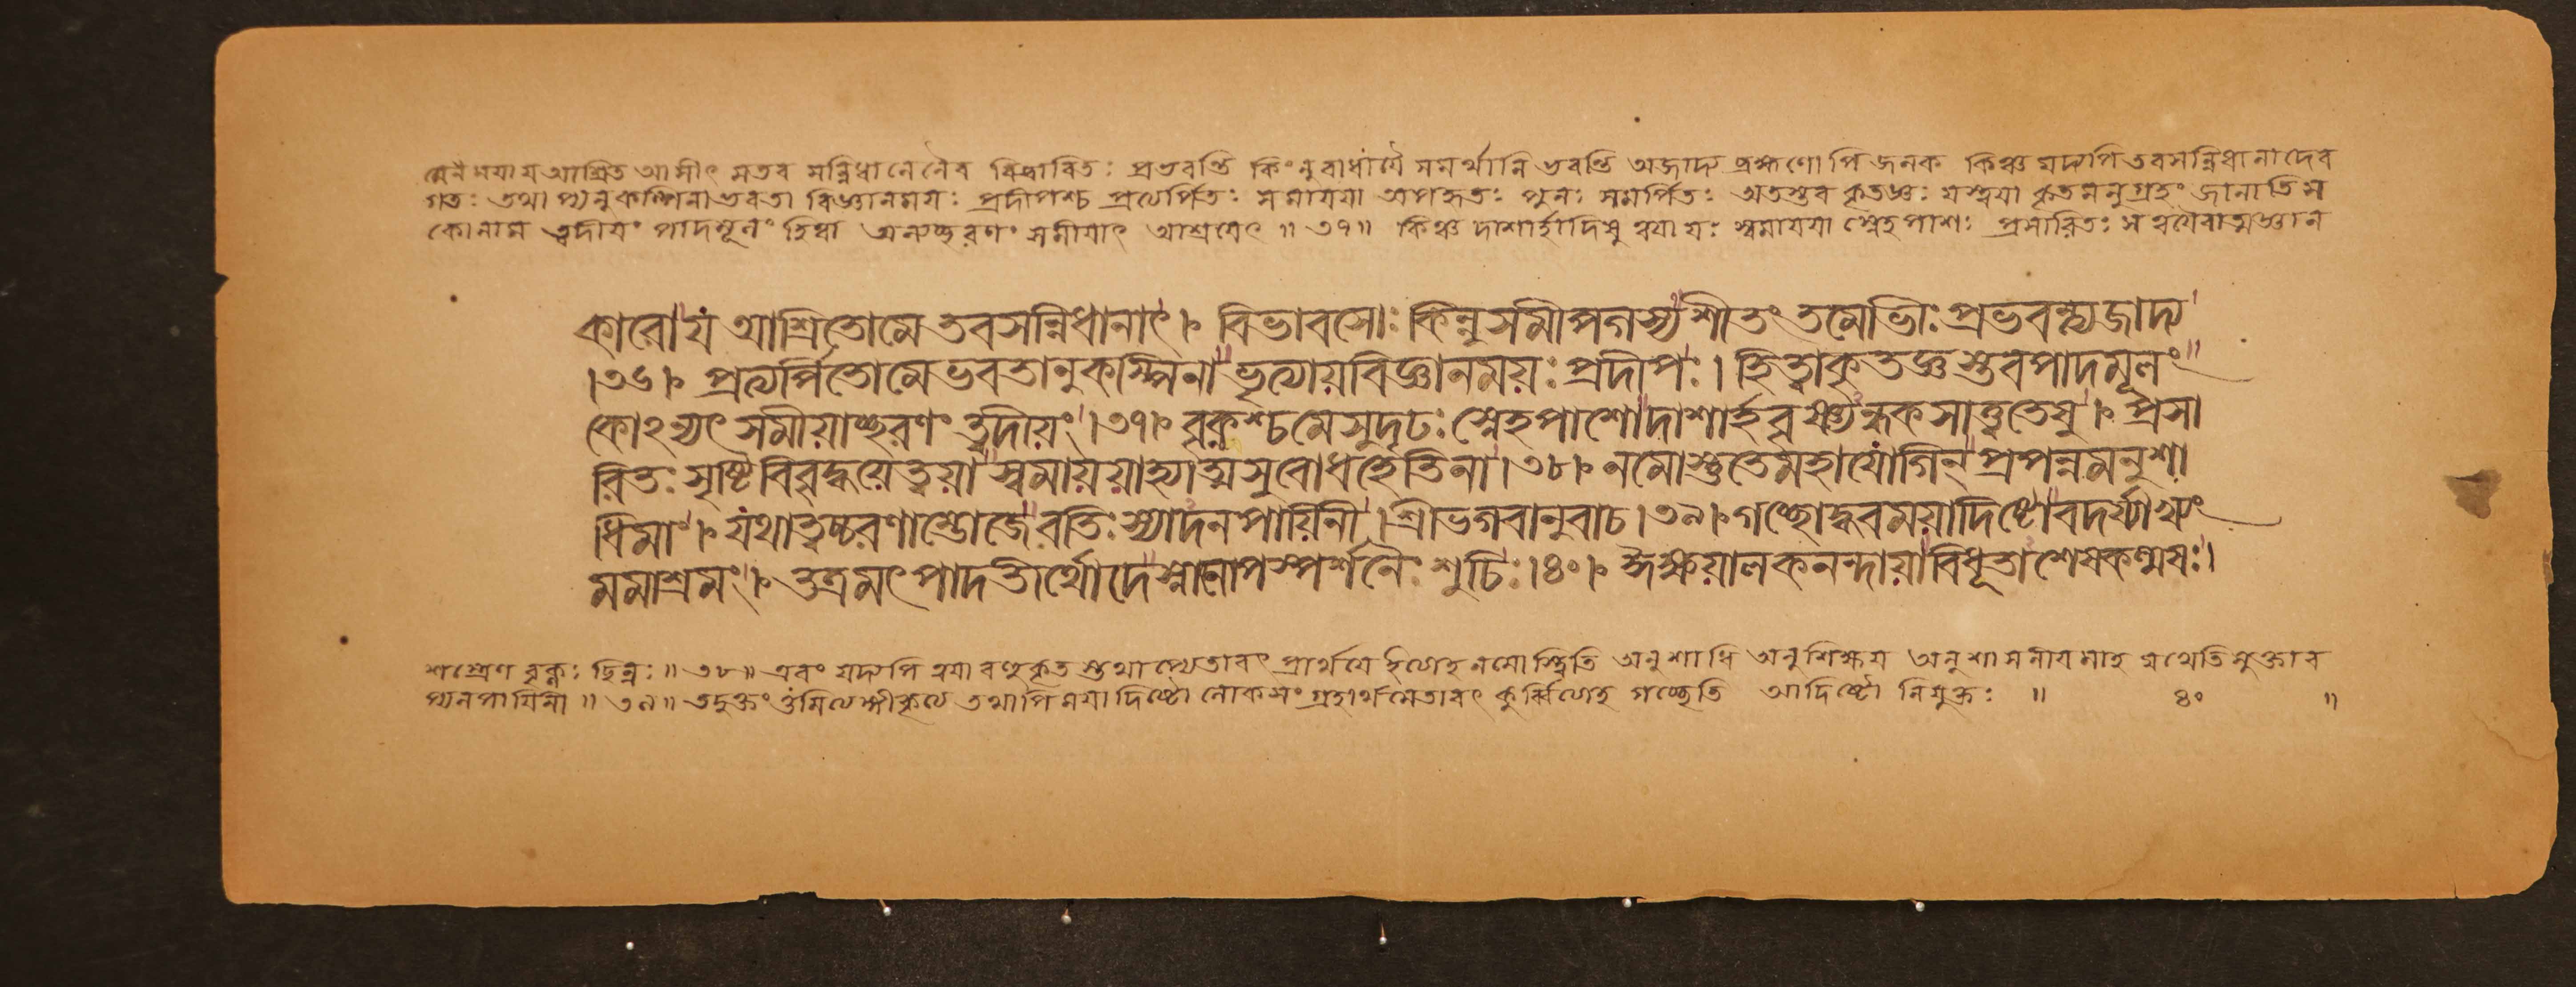 মেনৈময়া য আশ্রিত আসীৎ স তব সন্নিধানেনৈব বিদ্রাবিতঃ প্রভবন্তি কিং নু বাধার্থং সমর্থানি ভবন্তি অজাদ্য ব্রহ্মণোপি জনক কিঞ্চ যদ্যপি তব সন্নিধানাদেব
গতঃ তথাপ্যনুকম্পিনা ভবতা বিজ্ঞানময়ঃ প্রদীপশ্চ প্রত্যর্পিতঃ স মায়য়া অপহৃতঃ পুনঃ সমর্পিতঃ অতস্তব কৃতজ্ঞঃ যস্ত্বয়া কৃতমনুগ্রহং জানাতি স
কো নাম ত্বদীয়ং পাদমূলং হিত্বা অন্যচ্ছরণং সমীয়াৎ আশ্রয়েৎ ॥ ৩৭॥ কিঞ্চ দাশার্হাদিষু ত্বয়া যঃ স্বমায়য়া স্নেহপাশঃ প্রসারিতঃ স ত্বয়ৈবাত্মজ্ঞান
কারো য আশ্রিতো মে তব সন্নিধানাৎ। বিভাবসোঃ কিন্নু সমীপগস্য শীতং তমোভীঃ প্রভবন্ত্যজাদ্য
।৩৬। প্রত্যর্পিতো মে ভবতানুকম্পিনা ভৃত্যায় বিজ্ঞানময়ঃ প্রদীপঃ। হিত্বা কৃতজ্ঞস্তব পাদমূলং
কোঽন্যৎ সমীয়াচ্ছরণং ত্বদীয়ং।৩৭। বৃক্নশ্চ মে সুদৃঢঃ স্নেহপাশো দাশার্হবৃষ্ণ্যন্ধকসাত্বতেষু। প্রসা
রিতঃ সৃষ্টিবিবৃদ্ধয়ে ত্বয়া স্বমায়য়া হ্যাত্মসুবোধহেতিনা।৩৮। নমোস্তু তে মহাযোগিন্ প্রপন্নমনুশা
ধি মাং। যথা ত্বচ্চরণাম্ভোজে রতিঃ স্যাদনপায়িনী। শ্রীভগবানুবাচ।৩৯। গচ্ছোদ্ধব ময়াদিষ্টো বদর্য্যাখ্যং
মমাশ্রমং। তত্র মৎপাদতীর্থোদে স্নানোপস্পর্শনৈঃ শুচিঃ।৪০। ঈক্ষয়ালকনন্দায়া বিধূতাশেষকল্মষঃ।
শস্ত্রেণ বৃক্নঃ ছিন্নঃ ॥ ৩৮॥ এবং যদ্যপি ত্বয়া বহুকৃতস্তথাপ্যেতাবৎ প্রার্থয়ে ইত্যাহ নমোস্ত্বিতি অনুশাধি অনুশিক্ষয় অনুশাসনীয়মাহ যথেতি মুক্তাব
প্যনপায়িনী ॥ ৩৯॥ তদুক্তং ওঁমিত্যঙ্গীকৃত্য তথাপি ময়াদিষ্টো লোকসংগ্রহার্থমেতাবৎ কুর্ব্বিত্যাহ গচ্ছেতি আদিষ্টো নিযুক্তঃ ॥ ৪০ ॥